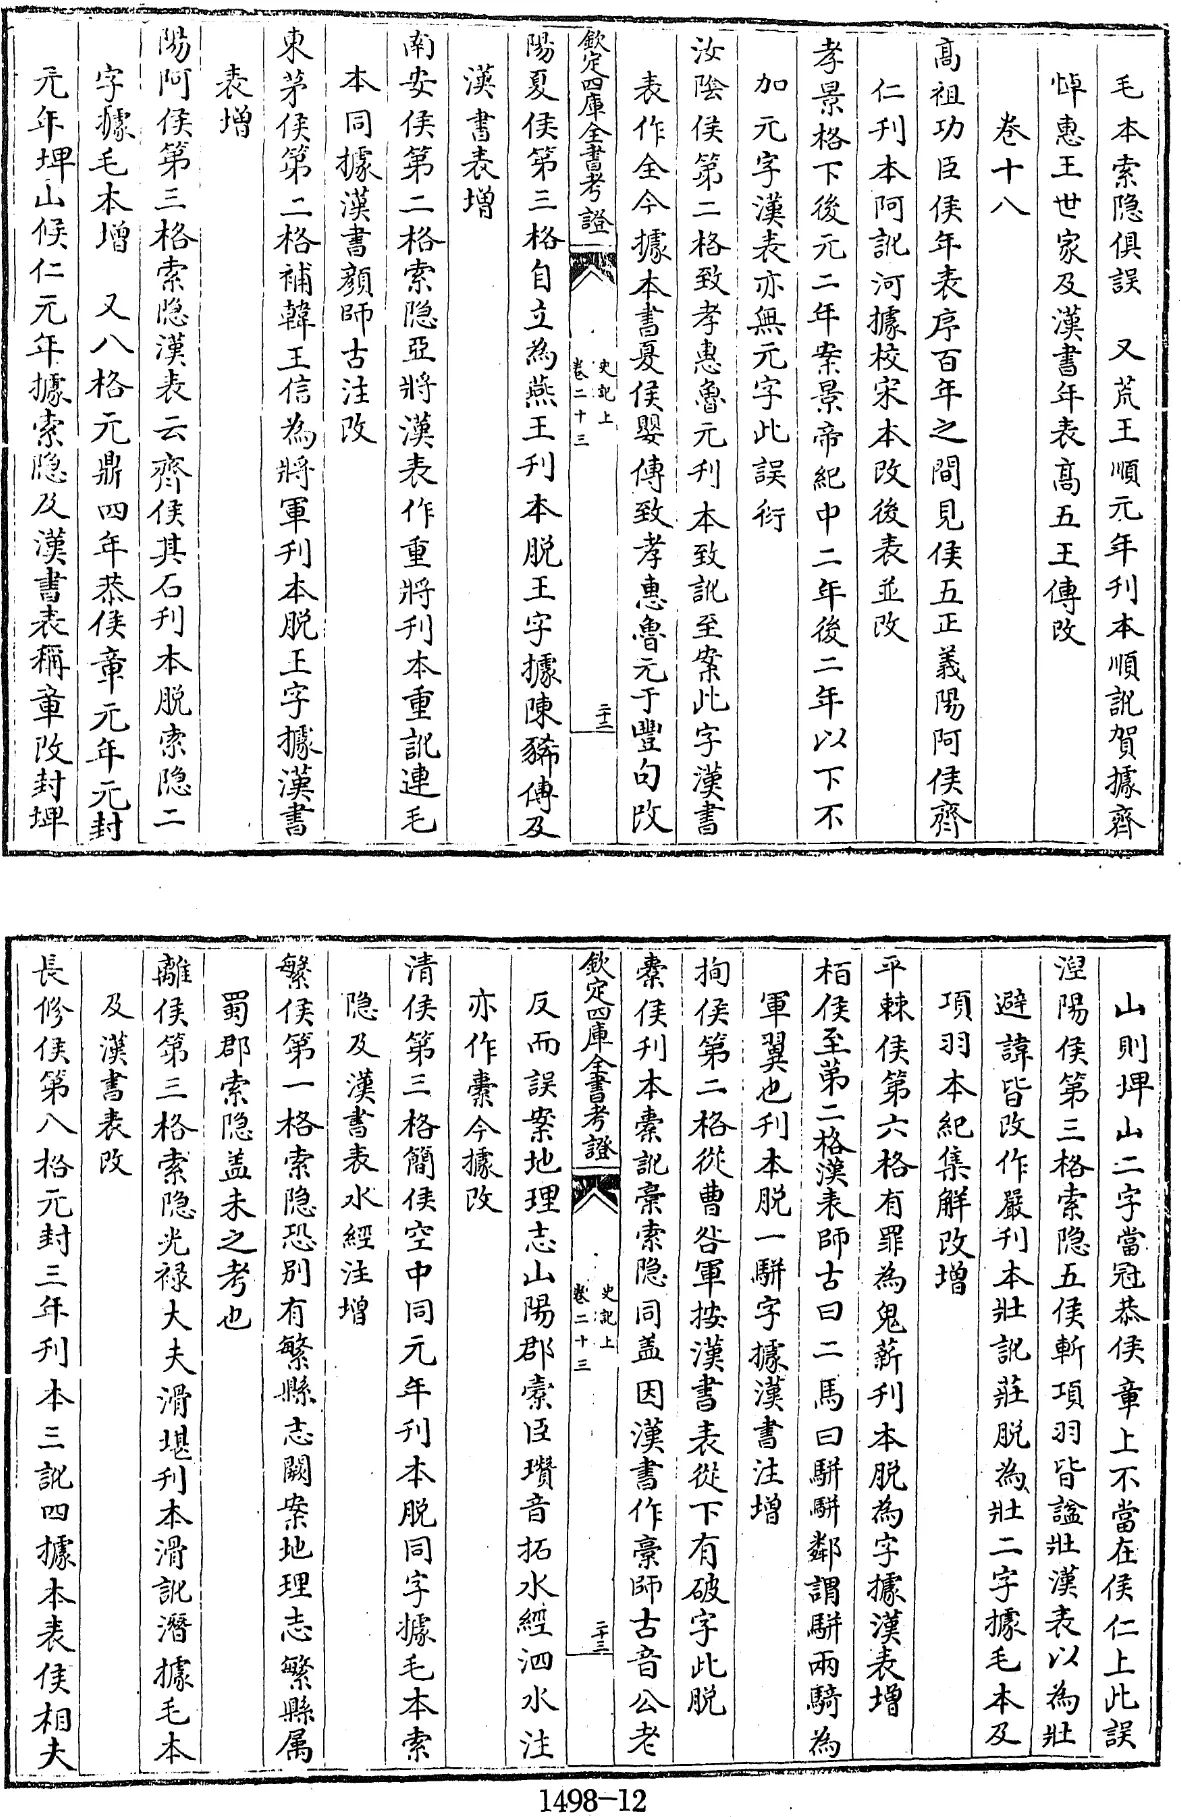 毛本索隐俱誤　又荒王順元年刊本順訛賀據齊
悼惠王世家及漢書年表高五王傳改
卷十八
高祖功臣侯年表序百年之間見侯五正義陽阿侯齊
仁刊本阿訛河據校宋本改後表並改
孝景格下後元二年案景帝紀中二年後二年以下不
加元字漢表亦無元字此誤衍
汝陰侯第二格致孝惠魯元刊本致訛至案此字漢書
表作全今據本書夏侯嬰傳致孝惠魯元于豐句改
欽定四庫全書考證　史記上　卷二十三　二十二
陽夏侯第三格自立為燕王刊本脱王字據陳豨傳及
漢書表增
南安侯第二格索隐亞將漢表作重將刊本重訛連毛
本同據漢書顔師古注改
東茅侯第二格補韓王信為將軍刊本脱王字據漢書
表增
陽阿侯第三格索隐漢表云齊侯其石刊本脱索隐二
字據毛本增　又八格元鼎四年恭侯章元年元封
元年埤山侯仁元年據索隐及漢書表稱章改封埤
山則埤山二字當冠恭侯章上不當在侯仁上此誤
湼陽侯第三格索隐五侯斬項羽皆諡壯漢表以為壯
避諱皆改作嚴刊本壯訛莊脱為壯二字據毛本及
項羽本紀集解改增
平棘侯第六格有罪為鬼薪刊本脱為字據漢表增
栢侯至第二格漢表師古曰二馬曰駢駢鄰謂駢兩騎為
軍翼也刊本脱一駢字據漢書注增
拘侯第二格從曹咎軍按漢書表從下有破字此脱
橐侯刊本橐訛稾索隐同盖因漢書作稾師古音公老
欽定四庫全書考證　史記上　卷二十三　二十三
反而誤案地理志山陽郡橐臣瓚音拓水經泗水注
亦作橐今據改
清侯第三格簡侯空中同元年刊本脱同字據毛本索
隐及漢書表水經注增
繁侯第一格索隐恐别有繁縣志闕案地理志繁縣属
蜀郡索隐盖未之考也
離侯第三格索隐光禄大夫滑堪刊本滑訛潛據毛本
及漢書表改
長脩侯第八格元封三年刊本三訛四據本表侯相夫
1498-12